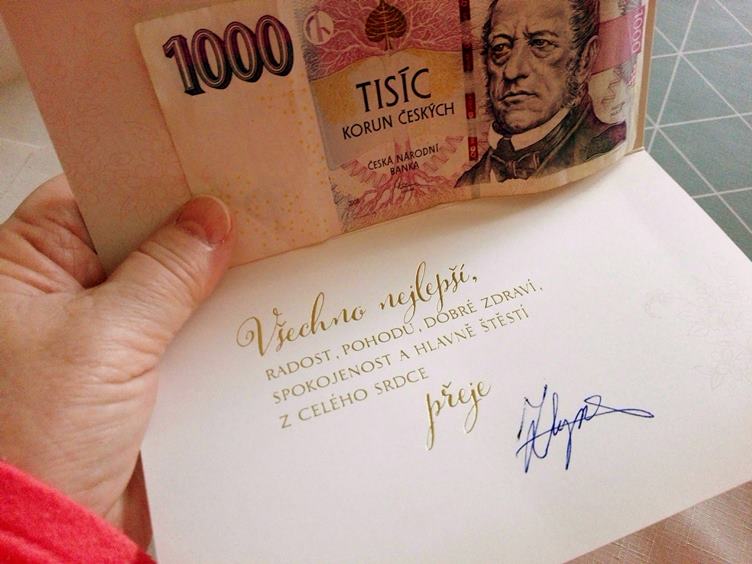 1000
TISÍC
KORUN ČESKÝCH
ČESKÁ NÁRODNÍ
BANKA
1000
Všechno nejlepší,
RADOST, POHODU, DOBRÉ ZDRAVÍ,
SPOKOJENOST A HLAVNĚ ŠTĚSTÍ
Z CELÉHO SRDCE
přeje